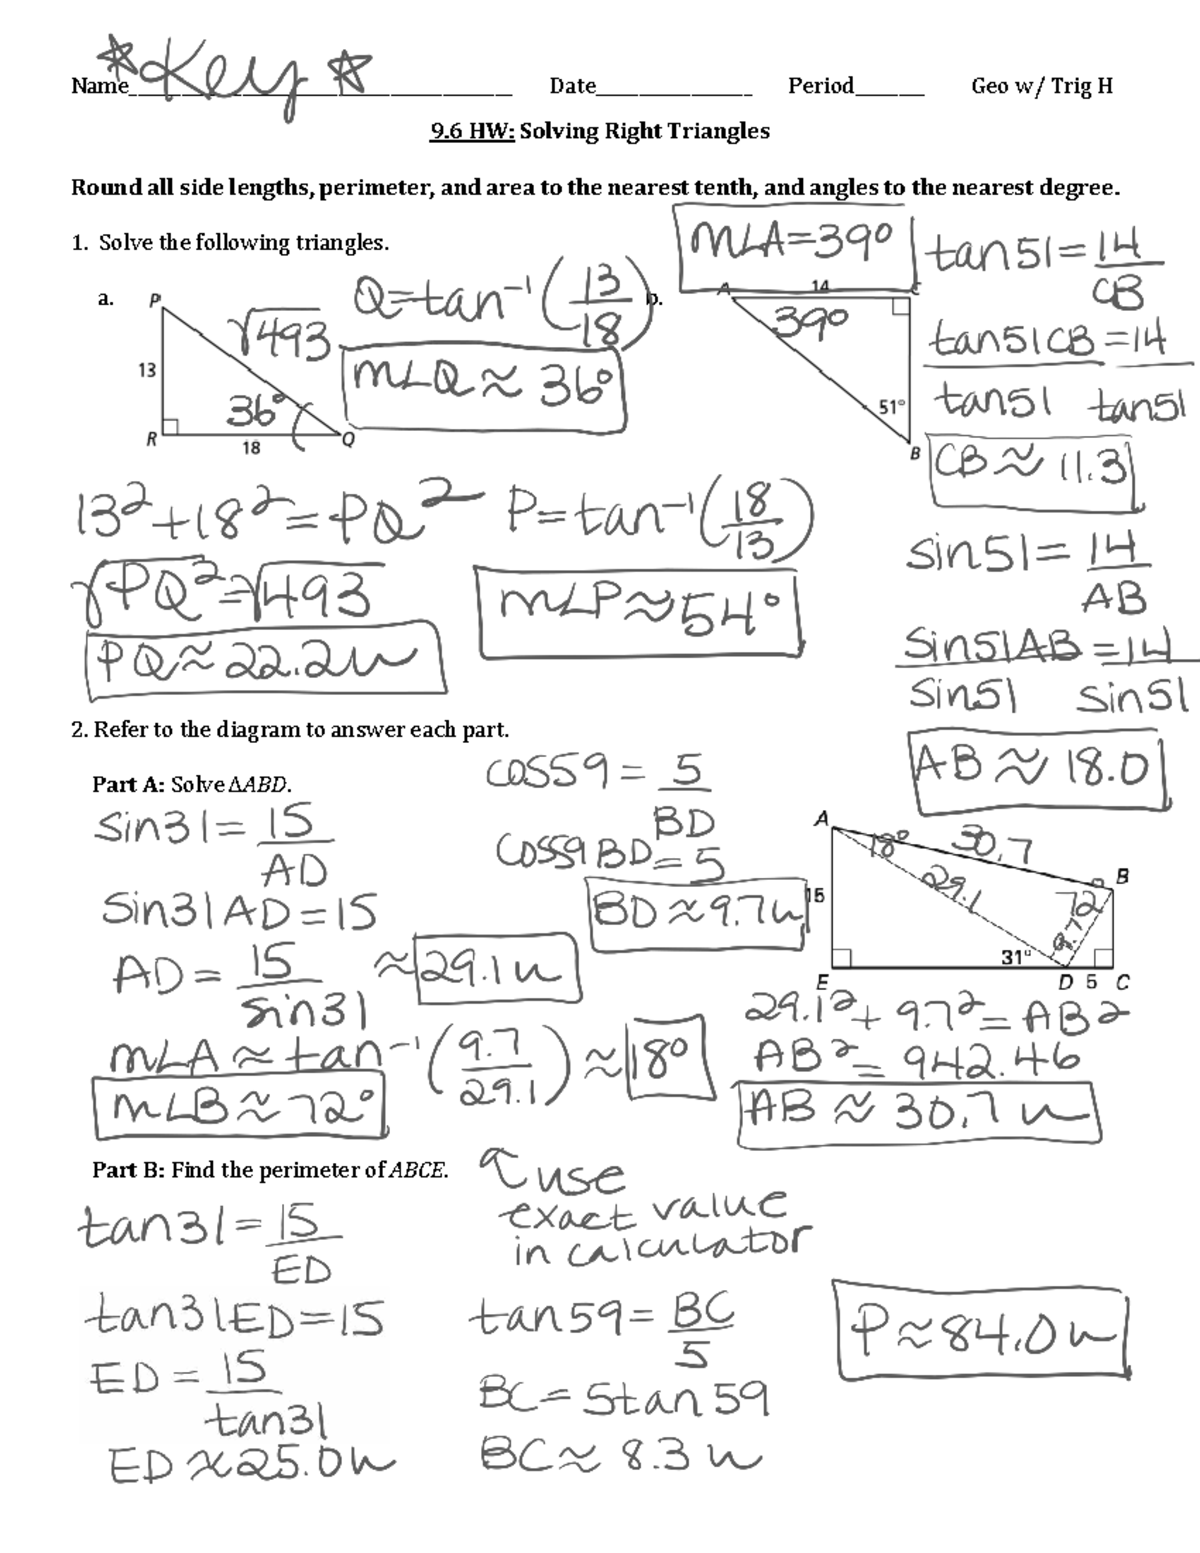 Name *Key* Date Period Geo w/ Trig H
9.6 HW: Solving Right Triangles
Round all side lengths, perimeter, and area to the nearest tenth, and angles to the nearest degree.
1. Solve the following triangles.
a.
P
13
R
18
Q
√493
36°
Q=tan⁻¹(13/18)
m∠Q≈36°
13²+18²=PQ²
√PQ²=√493
PQ≈22.2u
P=tan⁻¹(18/13)
m∠P≈54°
b.
m∠A=39°
A
14
C
39°
51°
B
tan51=14/CB
tan51CB=14
tan51 tan51
CB≈11.3
sin51=14/AB
sin51AB=14
sin51 sin51
AB≈18.0
2. Refer to the diagram to answer each part.
Part A: Solve ΔABD.
sin31=15/AD
sin31AD=15
AD=15/sin31 ≈29.1u
cos59=5/BD
cos59BD=5
BD≈9.7u
m∠A≈tan⁻¹(9.7/29.1)≈18°
m∠B≈72°
A
18°
30.7
B
15
29.1
72
9.7
31°
E D 5 C
29.1²+9.7²=AB²
AB²=942.46
AB≈30.7u
Part B: Find the perimeter of ABCE.
use
exact value
in calculator
tan31=15/ED
tan31ED=15
ED=15/tan31
ED≈25.0u
tan59=BC/5
BC=5tan59
BC≈8.3u
P≈84.0u